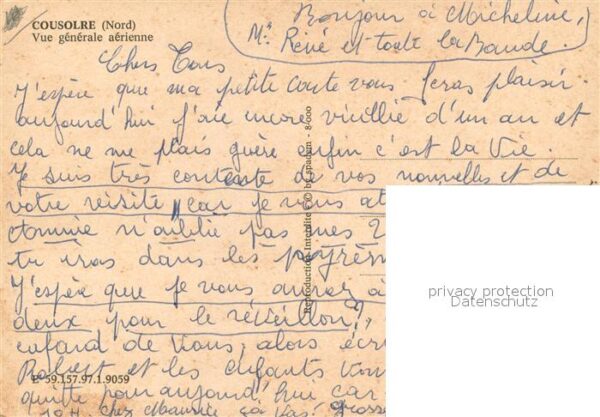 COUSOLRE (Nord)
Vue générale aérienne
Bonjour à Micheline,
Mr René et toute la Bande.
Chers Tous
J'espère que ma petite carte vous feras plaisir.
aujourd'hui j'aie encore vieillie d'un an et
cela ne me plais guère enfin c'est la Vie.
Je suis très contente de vos nouvelles et de
votre visite, car je vous at
n'aublie pas mes 2
tu iras dans les
J'espère que je vous aurai à
deux pour le réveillon,
cafard de vous, alors écri
Robert et les enfants von
E 59.157.97.1.9059
quitte pour aujourd'hui car
chez Maurice ça va. grosse
Reproduction Interdite © by spadem - 8-600
privacy protection
Datenschutz